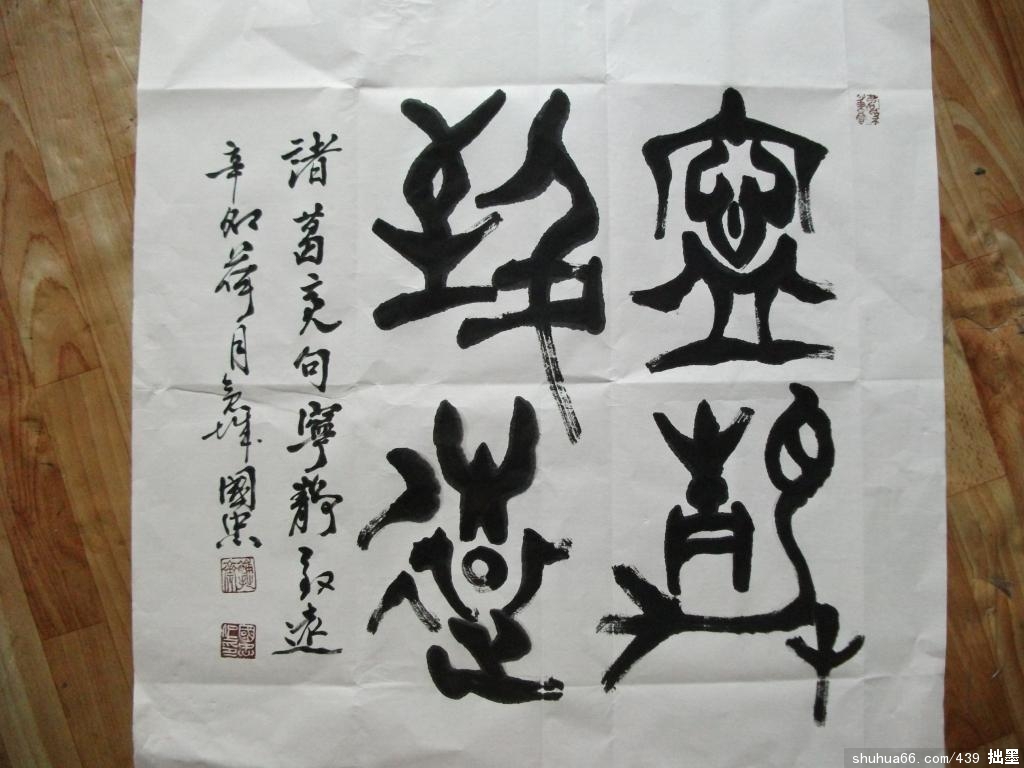 寧靜
致遠
諸葛亮句寧靜致遠
辛卯荷月城國忠
shuhua66.com/439 拙墨